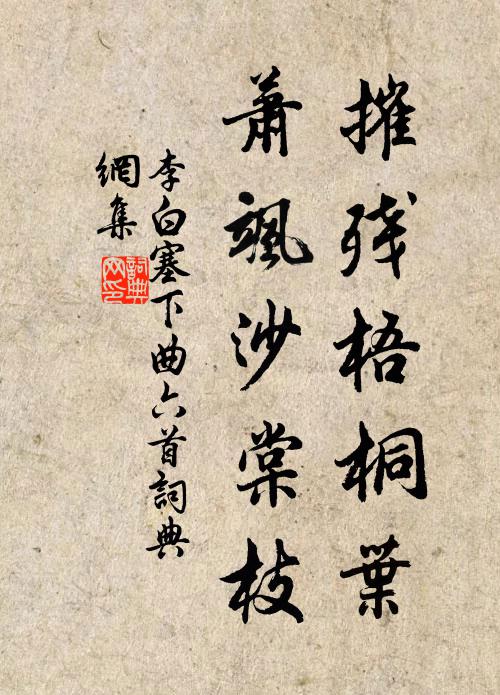 摧残梧桐葉
蕭颯沙棠枝
李白塞下曲六首詞典
網集
詞典
网印